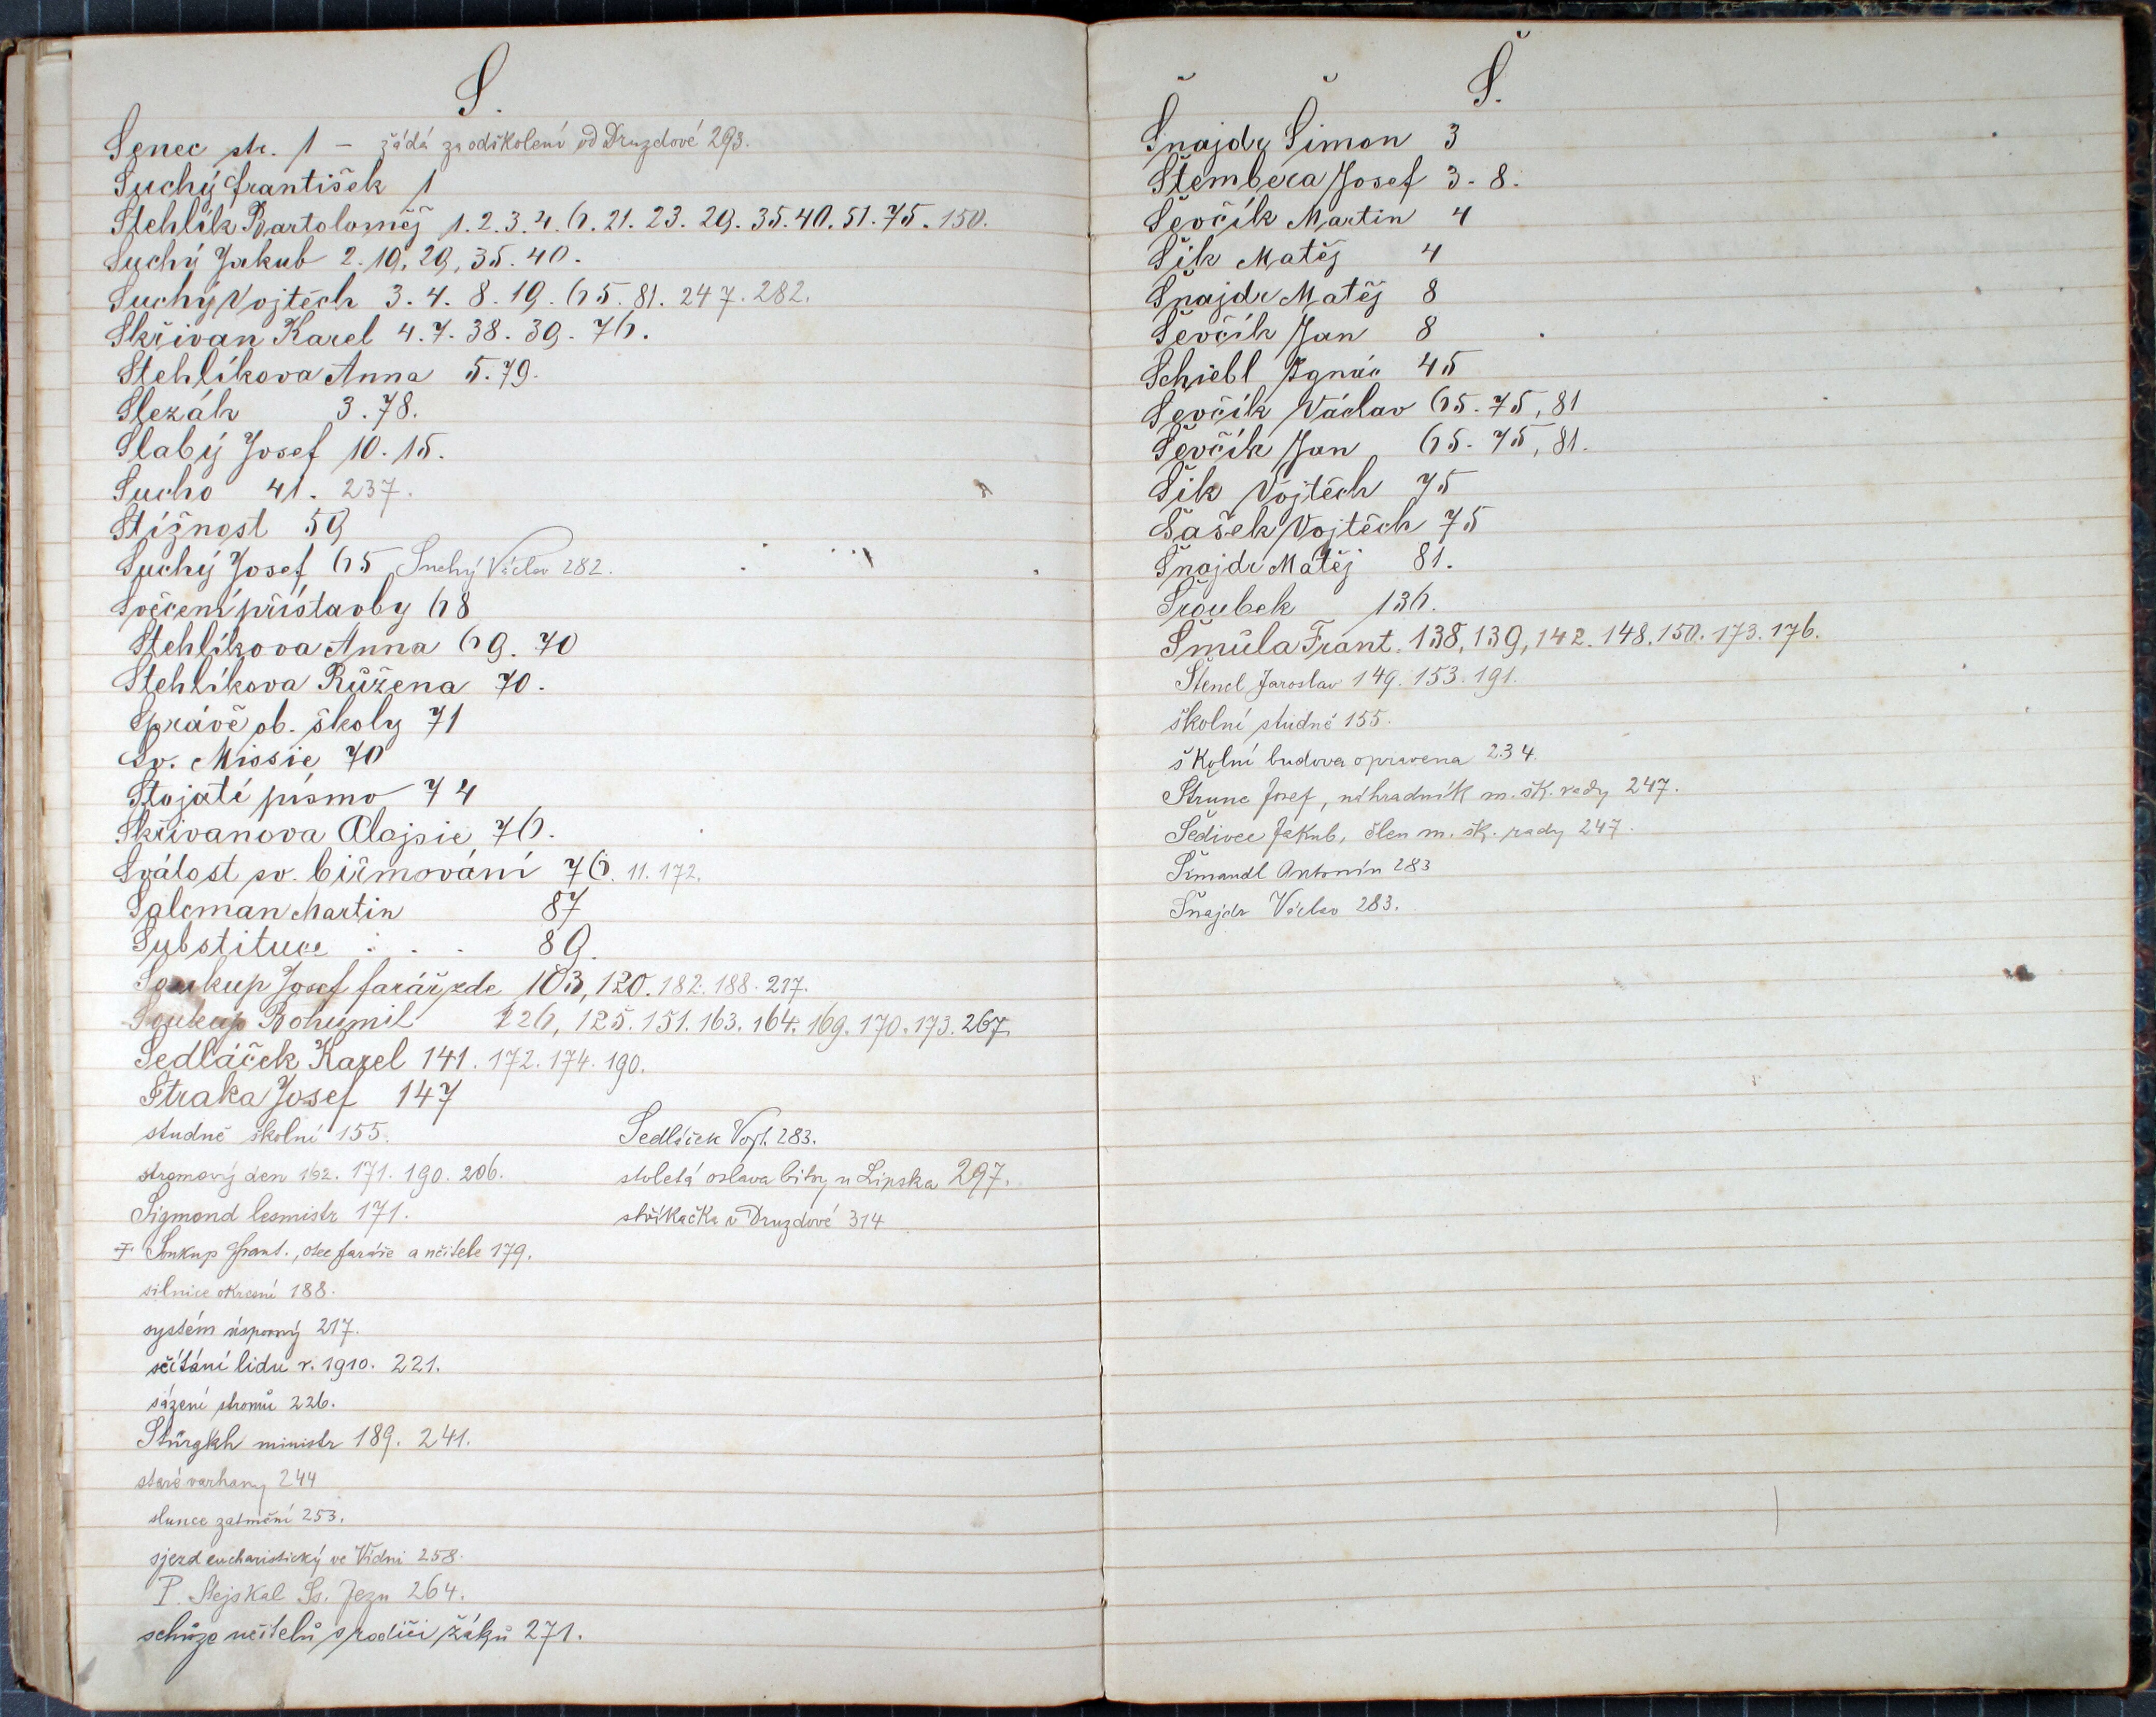 S.
Senec str. 1 – žádá za odškolení od Druzdové 293.
Suchý František 1
Stehlík Bartoloměj 1. 2. 3. 4. 6. 21. 23. 29. 35. 40. 51. 75. 150.
Suchý Jakub 2. 19, 29, 35. 40.
Suchý Vojtěch 3. 4. 8. 19. 65. 81. 247. 282.
Skřivan Karel 4. 7. 38. 39. 76.
Stehlíkova Anna 5. 79.
Slezák 3. 78.
Slabý Josef 10. 15.
Sucho 41. 237.
Stížnost 59
Suchý Josef 65 Suchý Václav 282.
Svěcení přístavby 68
Stehlíkova Anna 69. 70
Stehlíkova Růžena 70.
Správě ob. školy 71
Sv. Missie 70
Stojaté písmo 74
Skřivanova Alojsie 76.
Svátost sv. biřmování 76. 11. 172.
Salcman Martin 87
Substituce . . . 89.
Soukup Josef farář zde 103, 120. 182. 188. 217.
Soukup Bohumil 126, 125. 151. 163. 164. 169. 170. 173. 267.
Sedláček Karel 141. 172. 174. 190.
Straka Josef 147
studně školní 155.
stromový den 162. 171. 190. 206.
Sigmond lesmistr 171.
Soukup Frant., otec faráře a učitele 179.
silnice okresní 188.
systém úsporný 217.
sčítání lidu r. 1910. 221.
sázení stromů 226.
Stürgkh ministr 189. 241.
staré varhany 244
slunce zatmění 253.
sjezd eucharistický ve Vídni 258.
P. Stejskal Ss. Jezu 264.
schůze učitelů s rodiči žáků 271.
Sedláček Vojt. 283.
stoletá oslava bitvy u Lipska 297.
stříkačka v Druzdové 314
Š.
Šnajdr Šimon 3
Štembera Josef 3. 8.
Ševčík Martin 4
Šik Matěj 4
Šnajdr Matěj 8
Ševčík Jan 8
Schiebl Ignác 45
Ševčík Václav 65. 75, 81
Ševčík Jan 65. 75, 81.
Šik Vojtěch 75
Šašek Vojtěch 75
Šnajdr Matěj 81.
Šroubek 136.
Šmůla Frant. 138, 139, 142. 148. 150. 173. 176.
Štencl Jaroslav 149. 153. 191.
školní studně 155.
školní budova opravena 234.
Štrunc Josef, náhradník m. šk. rady 247.
Šedivec Jakub, člen m. šk. rady 247.
Šmandl Antonín 283
Šnajdr Václav 283.